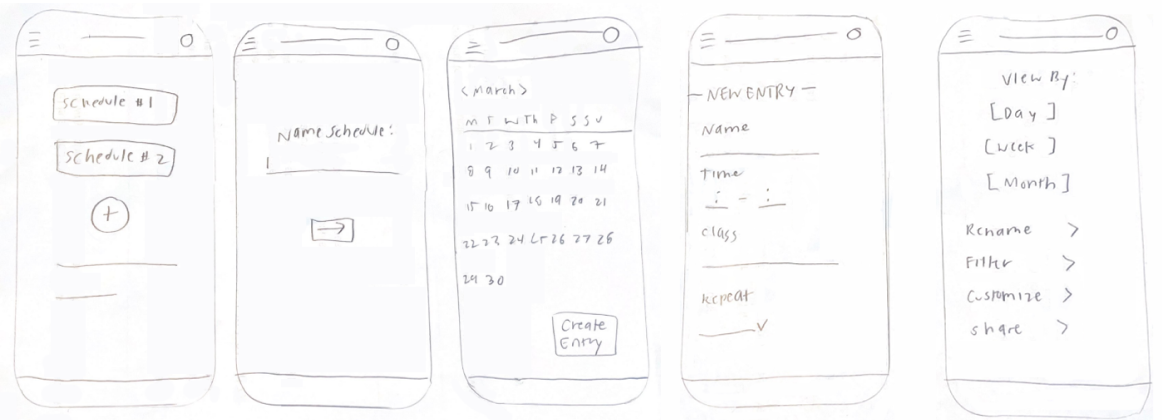 schedule #1
schedule #2
+
Name schedule:
→
< March >
M T W Th F S SU
1 2 3 4 5 6 7
8 9 10 11 12 13 14
15 16 17 18 19 20 21
22 23 24 25 26 27 28
29 30
Create
Entry
- NEW ENTRY -
Name
Time
: - :
class
Repeat
View By:
[Day]
[Week]
[Month]
Rename >
Filter >
Customize >
share >